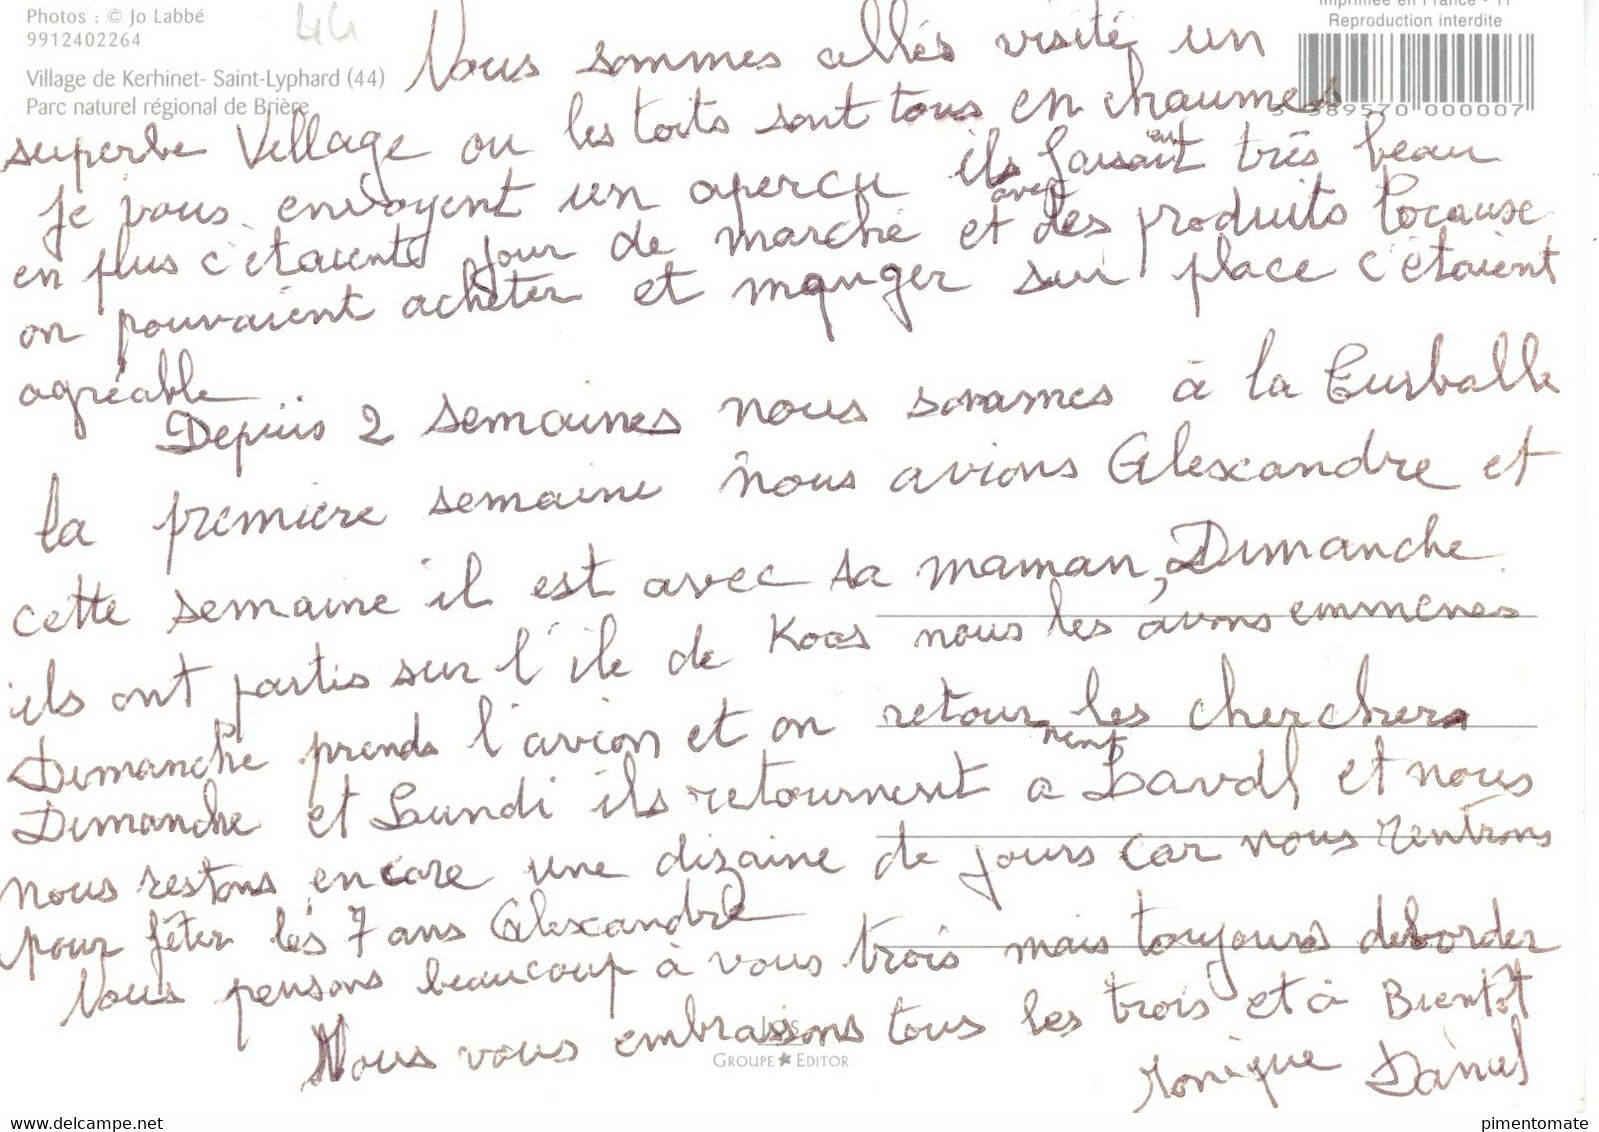 Photos : © Jo Labbé
9912402264
44
Village de Kerhinet- Saint-Lyphard (44)
Parc naturel régional de Brière
Imprimée en France - 11
Reproduction interdite
3 389570 000007
Nous sommes allés visité un
superbe Village ou les toits sont tous en chaumes
je vous envoyent un aperçu ils faisaient très beau
en plus c'étaients jour de marché et avec des produits locause
on pouvaient acheter et manger sur place c'étaient
agréable
Depuis 2 semaines nous sommes à la Turballe
la première semaine nous avions Alexandre et
cette semaine il est avec sa maman, Dimanche
ils ont partis sur l'île de Koos nous les avons emmenes
Dimanche prends l'avion et on retourne les chercher
Dimanche et Lundi ils retournent a Laval et nous
nous restons encore une dizaine de jours car nous rentrons
pour fêter les 7 ans Alexandre
Nous pensons beaucoup à vous trois mais toujours deborder
Nous vous embrassons tous les trois et à Bientôt
Monique Daniel
Jos
GROUPE ★ EDITOR
www.delcampe.net
pimentomate